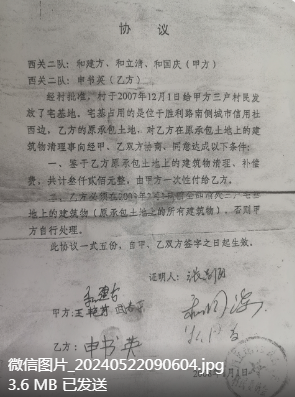 协 议
西关二队：和建方、和立清、和国庆（甲方）
西关二队：申书英（乙方）
经村批准，村于2007年12月1日给甲方三户村民发
放了宅基地。宅基占用的是位于胜利路南侧城市信用社
西边，乙方的原承包土地，对乙方在原承包土地上的建
筑物清理事向经甲、乙双方协商，同意达成以下条件：
一、鉴于乙方原承包土地上的建筑物清理、补偿
费，共计叁仟贰佰元整，由甲方一次性付给乙方。
二、乙方必须在200
地上的建筑物（原承包土地上的所有建筑物），否则甲
方自行处理。
此协议一式五份，自甲、乙双方签字之日起生效。
证明人：
甲方：
乙方：申书英
微信图片_20240522090604.jpg
3.6 MB 已发送